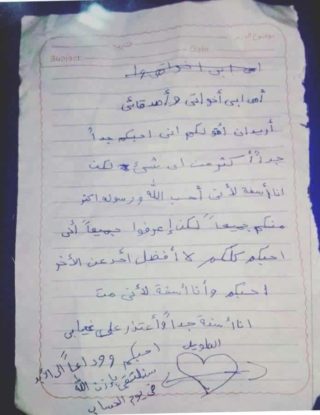 Subject
Date
أمي أبي أخواتي و
أمي أبي أخواتي وأصدقائي
أريد أن أقول لكم أني احبكم جداً
جداً أكثر من اي شئ لكن
انا أسفة لأني أحب الله ورسوله اكثر
منكم جميعاً لكن إعرفوا جميعاً أني
احبكم كلكم لا أفضل أحد عن الأخر
احبكم وأنا أسفة لأني مت
انا أسفة جداً وأعتذار على غيابي
الطويل
احبكم ووداعاً الى الأبد
سنلتقى بإذن الله
في يوم الحساب